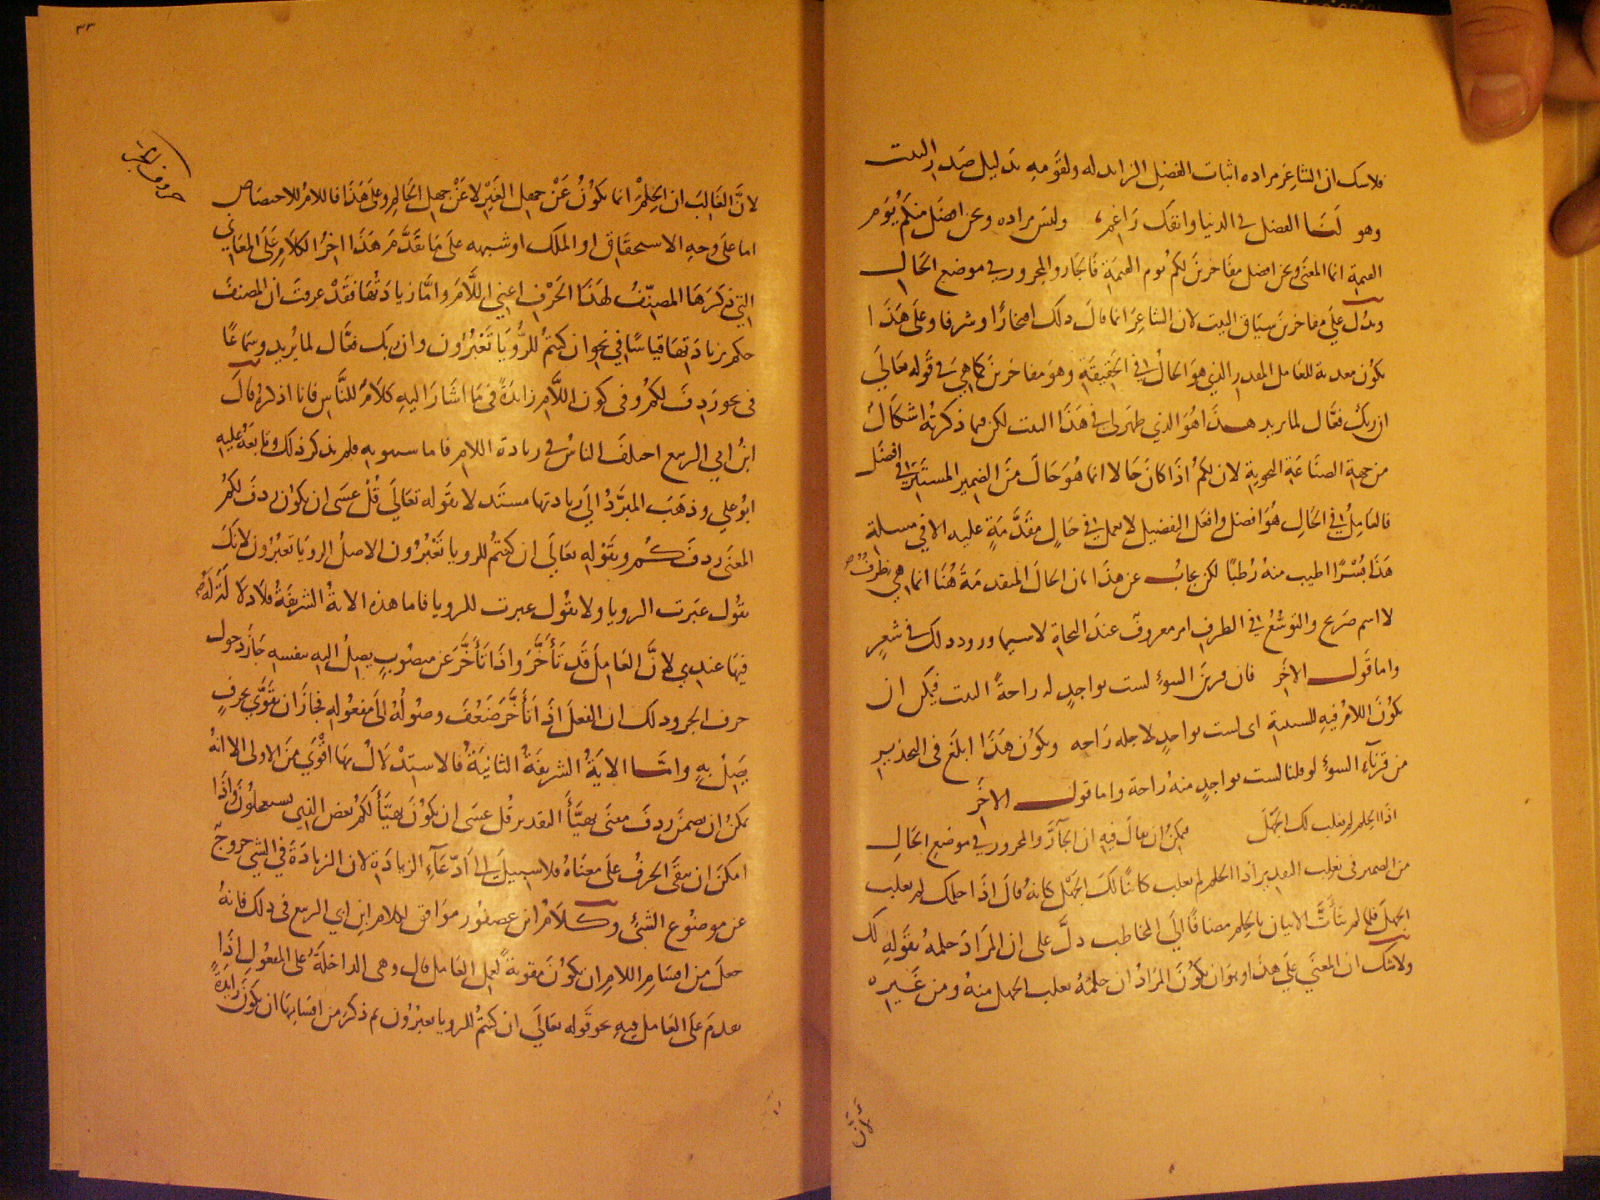 فلا شك ان الشاعر مراده اثبات الفضل الزايد له ولقومه بدليل صدر البيت
وهو لنا الفضل في الدنيا وانفك راغم وليس مراده ونحن افضل منكم يوم
القيمة انما المعنى ونحن افضل مفاخرين لكم يوم القيمة فالجار والمجرور في موضع الحال
ويدل على مفاخرين سياق البيت لان الشاعر انما قال ذلك افتخارا وشرفا وعلى هذا
يكون معدية للعامل المقدر الذي هو الحال في الحقيقة وهو مفاخرين كما هي في قوله تعالى
ان ربك فعال لما يريد هذا هو الذي ظهر لي في هذا البيت لكن فيما ذكرته اشكال
من جهة الصناعة النحوية لان لكم اذا كان حالا انما هو حال من الضمير المستتر في افضل
فالعامل في الحال هو افضل وافعل التفضيل لا يعمل في حال مقدمة عليه الا في مسلة
هذا بسرا اطيب منه رطبا لكن يجاب عن هذا بان الحال المتقدمة هنا انما هي ظرف
لا اسم صريح والتوسع في الظرف امر معروف عند النحاة لا سيما وورود ذلك في شعر
واما قول الاخر فان قرين السوء لست بواجد له راحة البيت فيمكن ان
يكون اللام فيه للسببية اى لست بواجد لاجله راحه ويكون هذا ابلغ في التحذير
من قرناء السوء لو قلنا لست بواجد منه راحة واما قول الاخر
اذا الحلم لم يغلب لك الجهل فيمكن ان يقال فيه ان الجار والمجرور في موضع الحال
من الضمير في يغلب التقدير اذا الحلم لم يغلب كائنا لك الجهل كانه قال اذا حلمك لم يغلب
الجهل فلما لم يتأت الاتيان بالحلم مضافا الى المخاطب دل على ان المراد حلمه بقوله لك
ولا شك ان المعنى على هذا وهو ان يكون المراد ان حلمه يغلب الجهل منه ومن غيره
لان
٣٣
حروف الجر
لان الغالب ان الحلم انما يكون عن جهل الغير لا عن جهل الحالم وعلى هذا فاللام للاختصاص
اما على وجه الاستحقاق او الملك او شبهه على ما تقدم هذا اخر الكلام على المعاني
التي ذكرها المصنف لهذا الحرف اعني اللام واما زيادتها فقد عرفت ان المصنف
حكم بزيادتها قياسا في نحو ان كنتم للرؤيا تعبرون وان ربك فعال لما يريد وسماعا
في نحو ردف لكم وفي كون اللام زايدة في ما اشار اليه كلام للناس فانا اذكره قال
ابن ابي الربيع اختلف الناس في زيادة اللام فاما سيبويه فلم يذكر ذلك وتابعه عليه
ابو علي وذهب المبرد الى زيادتها مستدلا بقوله تعالى قل عسى ان يكون ردف لكم
المعنى ردفكم وبقوله تعالى ان كنتم للرويا تعبرون الاصل الرويا تعبرون لانك
تقول عبرت الرويا ولا تقول عبرت للرويا فاما هذه الاية الشريفة فلا دلالة له
فيها عندي لان العامل قد تأخر واذا تأخر عن منصوب يصل اليه بنفسه جاز دخول
حرف الجر وذلك ان الفعل اذا تأخر ضعف وصوله الى مفعوله فجاز ان تقوى بحرف
يصل به واما الاية الشريفة الثانية فالاستدلال بها اقوى من الاولى الا انه
يمكن ان يضمن ردف معنى تهيأ التقدير قل عسى ان يكون تهيأ لكم بعض الذي تستعجلون واذا
امكن ان يبقى الحرف على معناه فلا سبيل الى ادعاء الزيادة لان الزيادة في الشي خروج
عن موضوع الشئ وكلام ابن عصفور موافق لكلام ابن ابي الربيع في ذلك فانه
جعل من اقسام اللام ان يكون مقوية لعمل العامل قال وهي الداخلة على المفعول اذا
تقدم على العامل فيه نحو قوله تعالى ان كنتم للرويا تعبرون ثم ذكر من اقسامها ان يكون زايدة